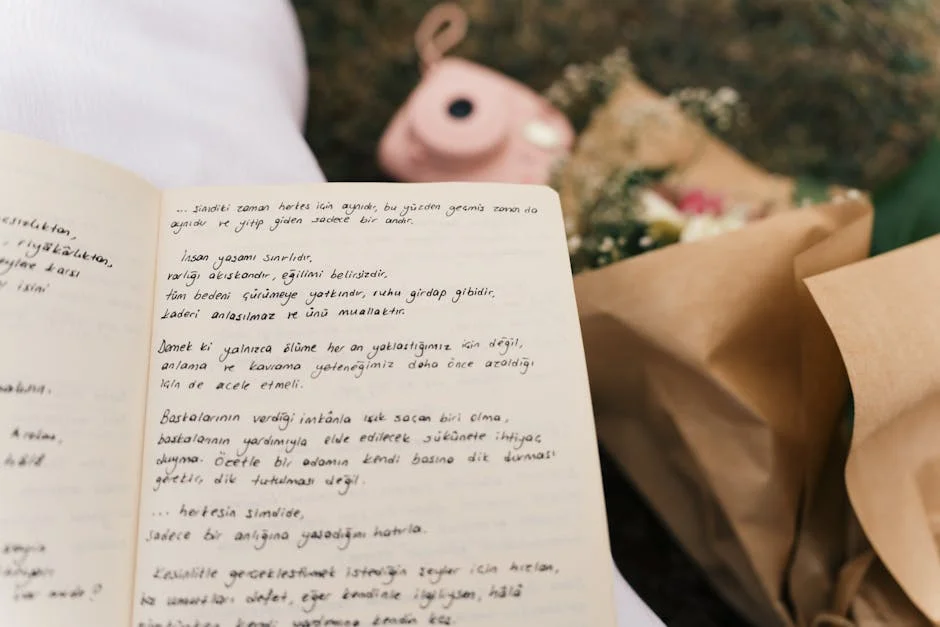 esizlikten,
, riyakârlıktan,
eylere karşı
r isini
Aralan,
hâlâ
... şimdiki zaman herkes için aynıdır, bu yüzden geçmiş zaman da
aynıdır ve yitip giden sadece bir andır.
İnsan yaşamı sınırlıdır,
varlığı akışkandır, eğilimi belirsizdir,
tüm bedeni çürümeye yatkındır, ruhu girdap gibidir,
kaderi anlaşılmaz ve ünü muallaktır.
Demek ki yalnızca ölüme her an yaklaştığımız için değil,
anlama ve kavrama yeteneğimiz daha önce azaldığı
için de acele etmeli.
Başkalarının verdiği imkânla ışık saçan biri olma,
başkalarının yardımıyla elde edilecek sükûnete ihtiyaç
duyma. Özetle bir adamın kendi başına dik durması
gerekir, dik tutulması değil.
... herkesin şimdide,
sadece bir anlığına yaşadığını hatırla.
Kesinlikle gerçekleştirmek istediğin şeyler için hızlan,
boş umutları defet, eğer kendinle ilgiliysen, hâlâ
mümkünken kendi yardımına kendin koş.